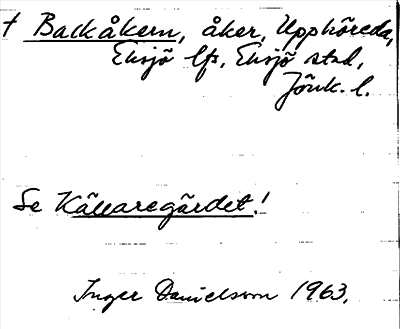 † Backåkern, åker, Upphöreda,
Eksjö lfs, Eksjö stad,
Jönk. l.
Se Källaregärdet!
Inger Danielsson 1963.